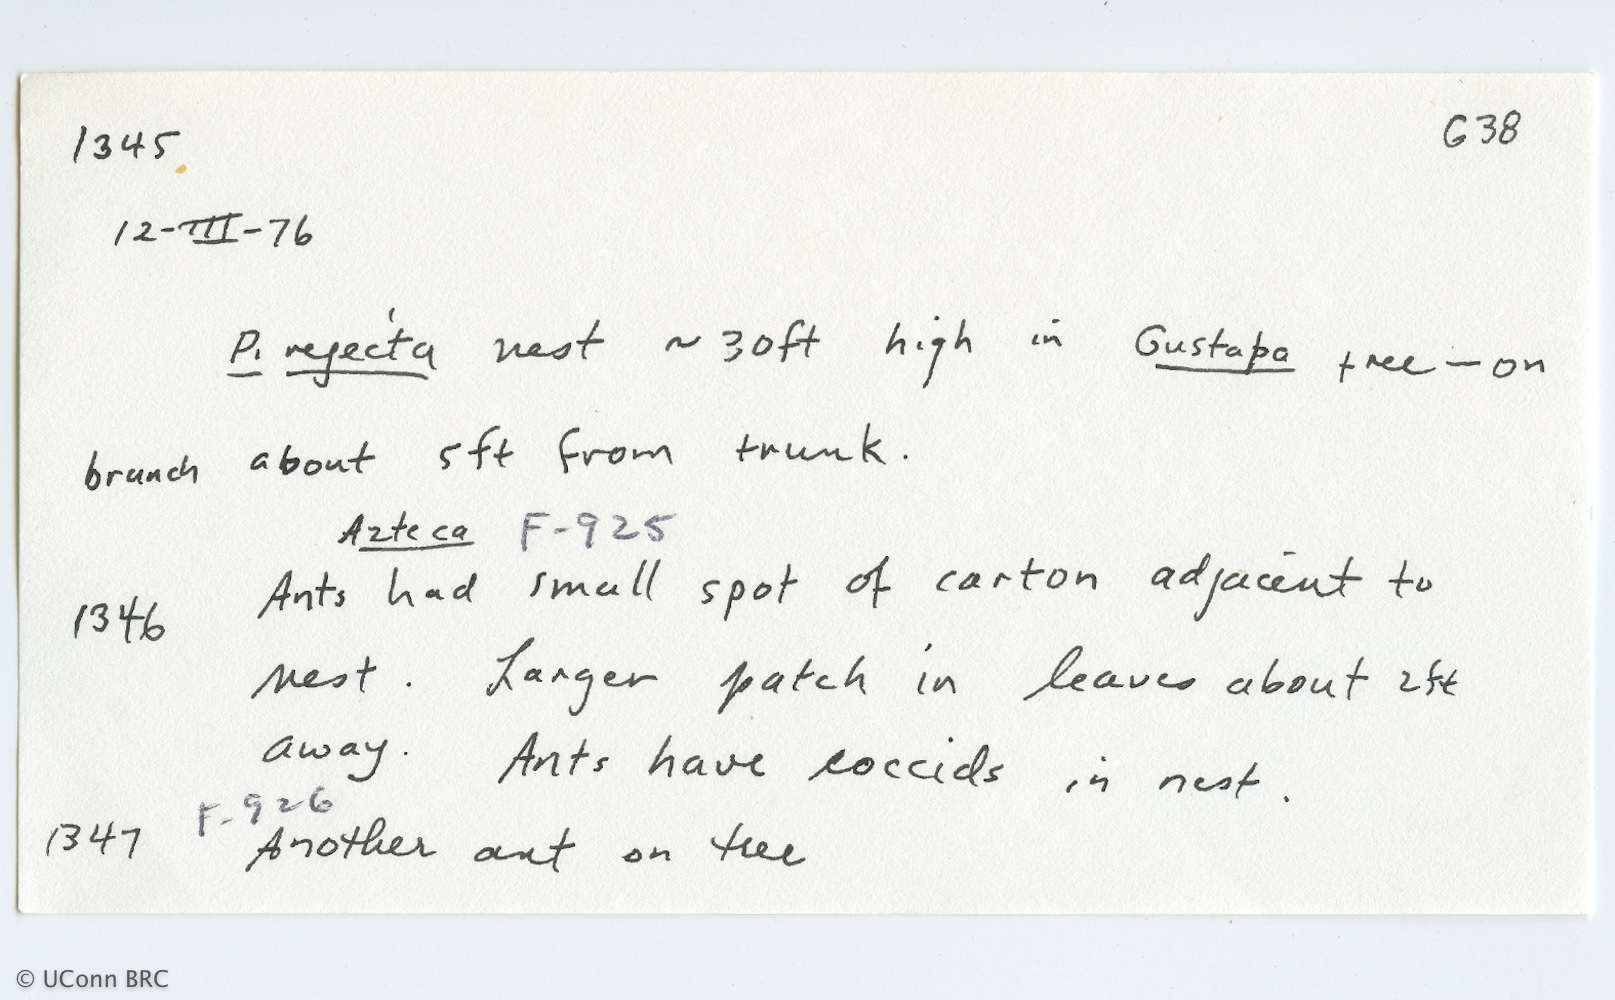 1345 G38
12-III-76
P. rejecta nest ~ 30ft high in Gustapa tree — on
branch about 5ft from trunk.
Azteca F-925
1346 Ants had small spot of carton adjacent to
nest. Larger patch in leaves about 2ft
away. Ants have coccids in nest.
F-926
1347 Another ant on tree
© UConn BRC